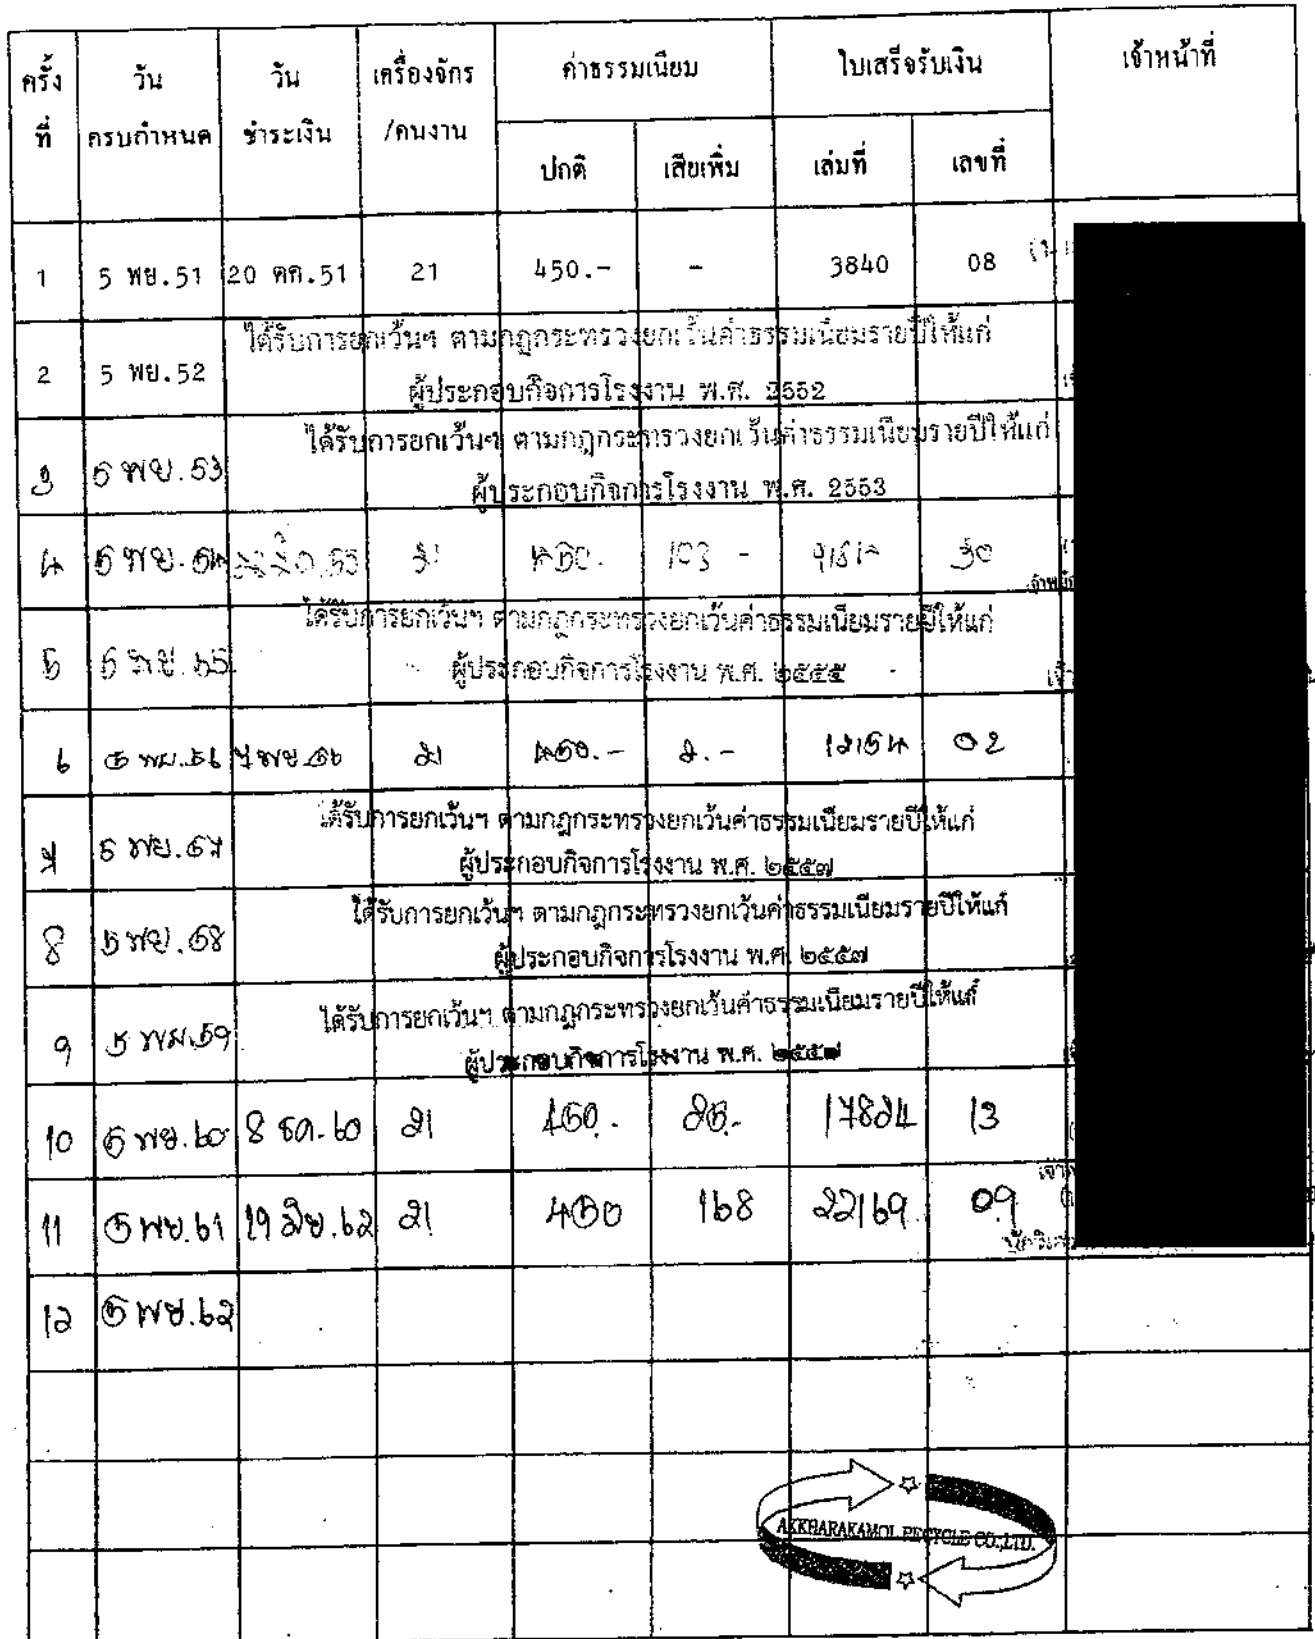 ครั้งที่ วันครบกำหนด วันชำระเงิน เครื่องจักร/คนงาน ค่าธรรมเนียม ใบเสร็จรับเงิน เจ้าหน้าที่
ปกติ เสียเพิ่ม เล่มที่ เลขที่
1 5 พย.51 20 ตค.51 21 450.- - 3840 08
ได้รับการยกเว้นฯ ตามกฎกระทรวงยกเว้นค่าธรรมเนียมรายปีให้แก่
2 5 พย.52
ผู้ประกอบกิจการโรงงาน พ.ศ. 2552
ได้รับการยกเว้นฯ ตามกฎกระทรวงยกเว้นค่าธรรมเนียมรายปีให้แก่
3 5 พย.53
ผู้ประกอบกิจการโรงงาน พ.ศ. 2553
4 5 พย.54 21 450.- 103 - 30
ได้รับการยกเว้นฯ ตามกฎกระทรวงยกเว้นค่าธรรมเนียมรายปีให้แก่
5 5 พย.55
ผู้ประกอบกิจการโรงงาน พ.ศ. ๒๕๕๕
6 5 พย.56 7 พย.56 21 450.- 2.- 12154 02
ได้รับการยกเว้นฯ ตามกฎกระทรวงยกเว้นค่าธรรมเนียมรายปีให้แก่
7 5 พย.57
ผู้ประกอบกิจการโรงงาน พ.ศ. ๒๕๕๗
ได้รับการยกเว้นฯ ตามกฎกระทรวงยกเว้นค่าธรรมเนียมรายปีให้แก่
8 5 พย.58
ผู้ประกอบกิจการโรงงาน พ.ศ. ๒๕๕๗
ได้รับการยกเว้นฯ ตามกฎกระทรวงยกเว้นค่าธรรมเนียมรายปีให้แก่
9 5 พย.59
ผู้ประกอบกิจการโรงงาน พ.ศ. ๒๕๕๗
10 5 พย.60 8 ธค.60 21 450.- 25.- 17824 13
11 5 พย.61 19 มิย.62 21 450 168 22169 09
12 5 พย.62
AKKHARAKAMOL RECYCLE CO.,LTD.